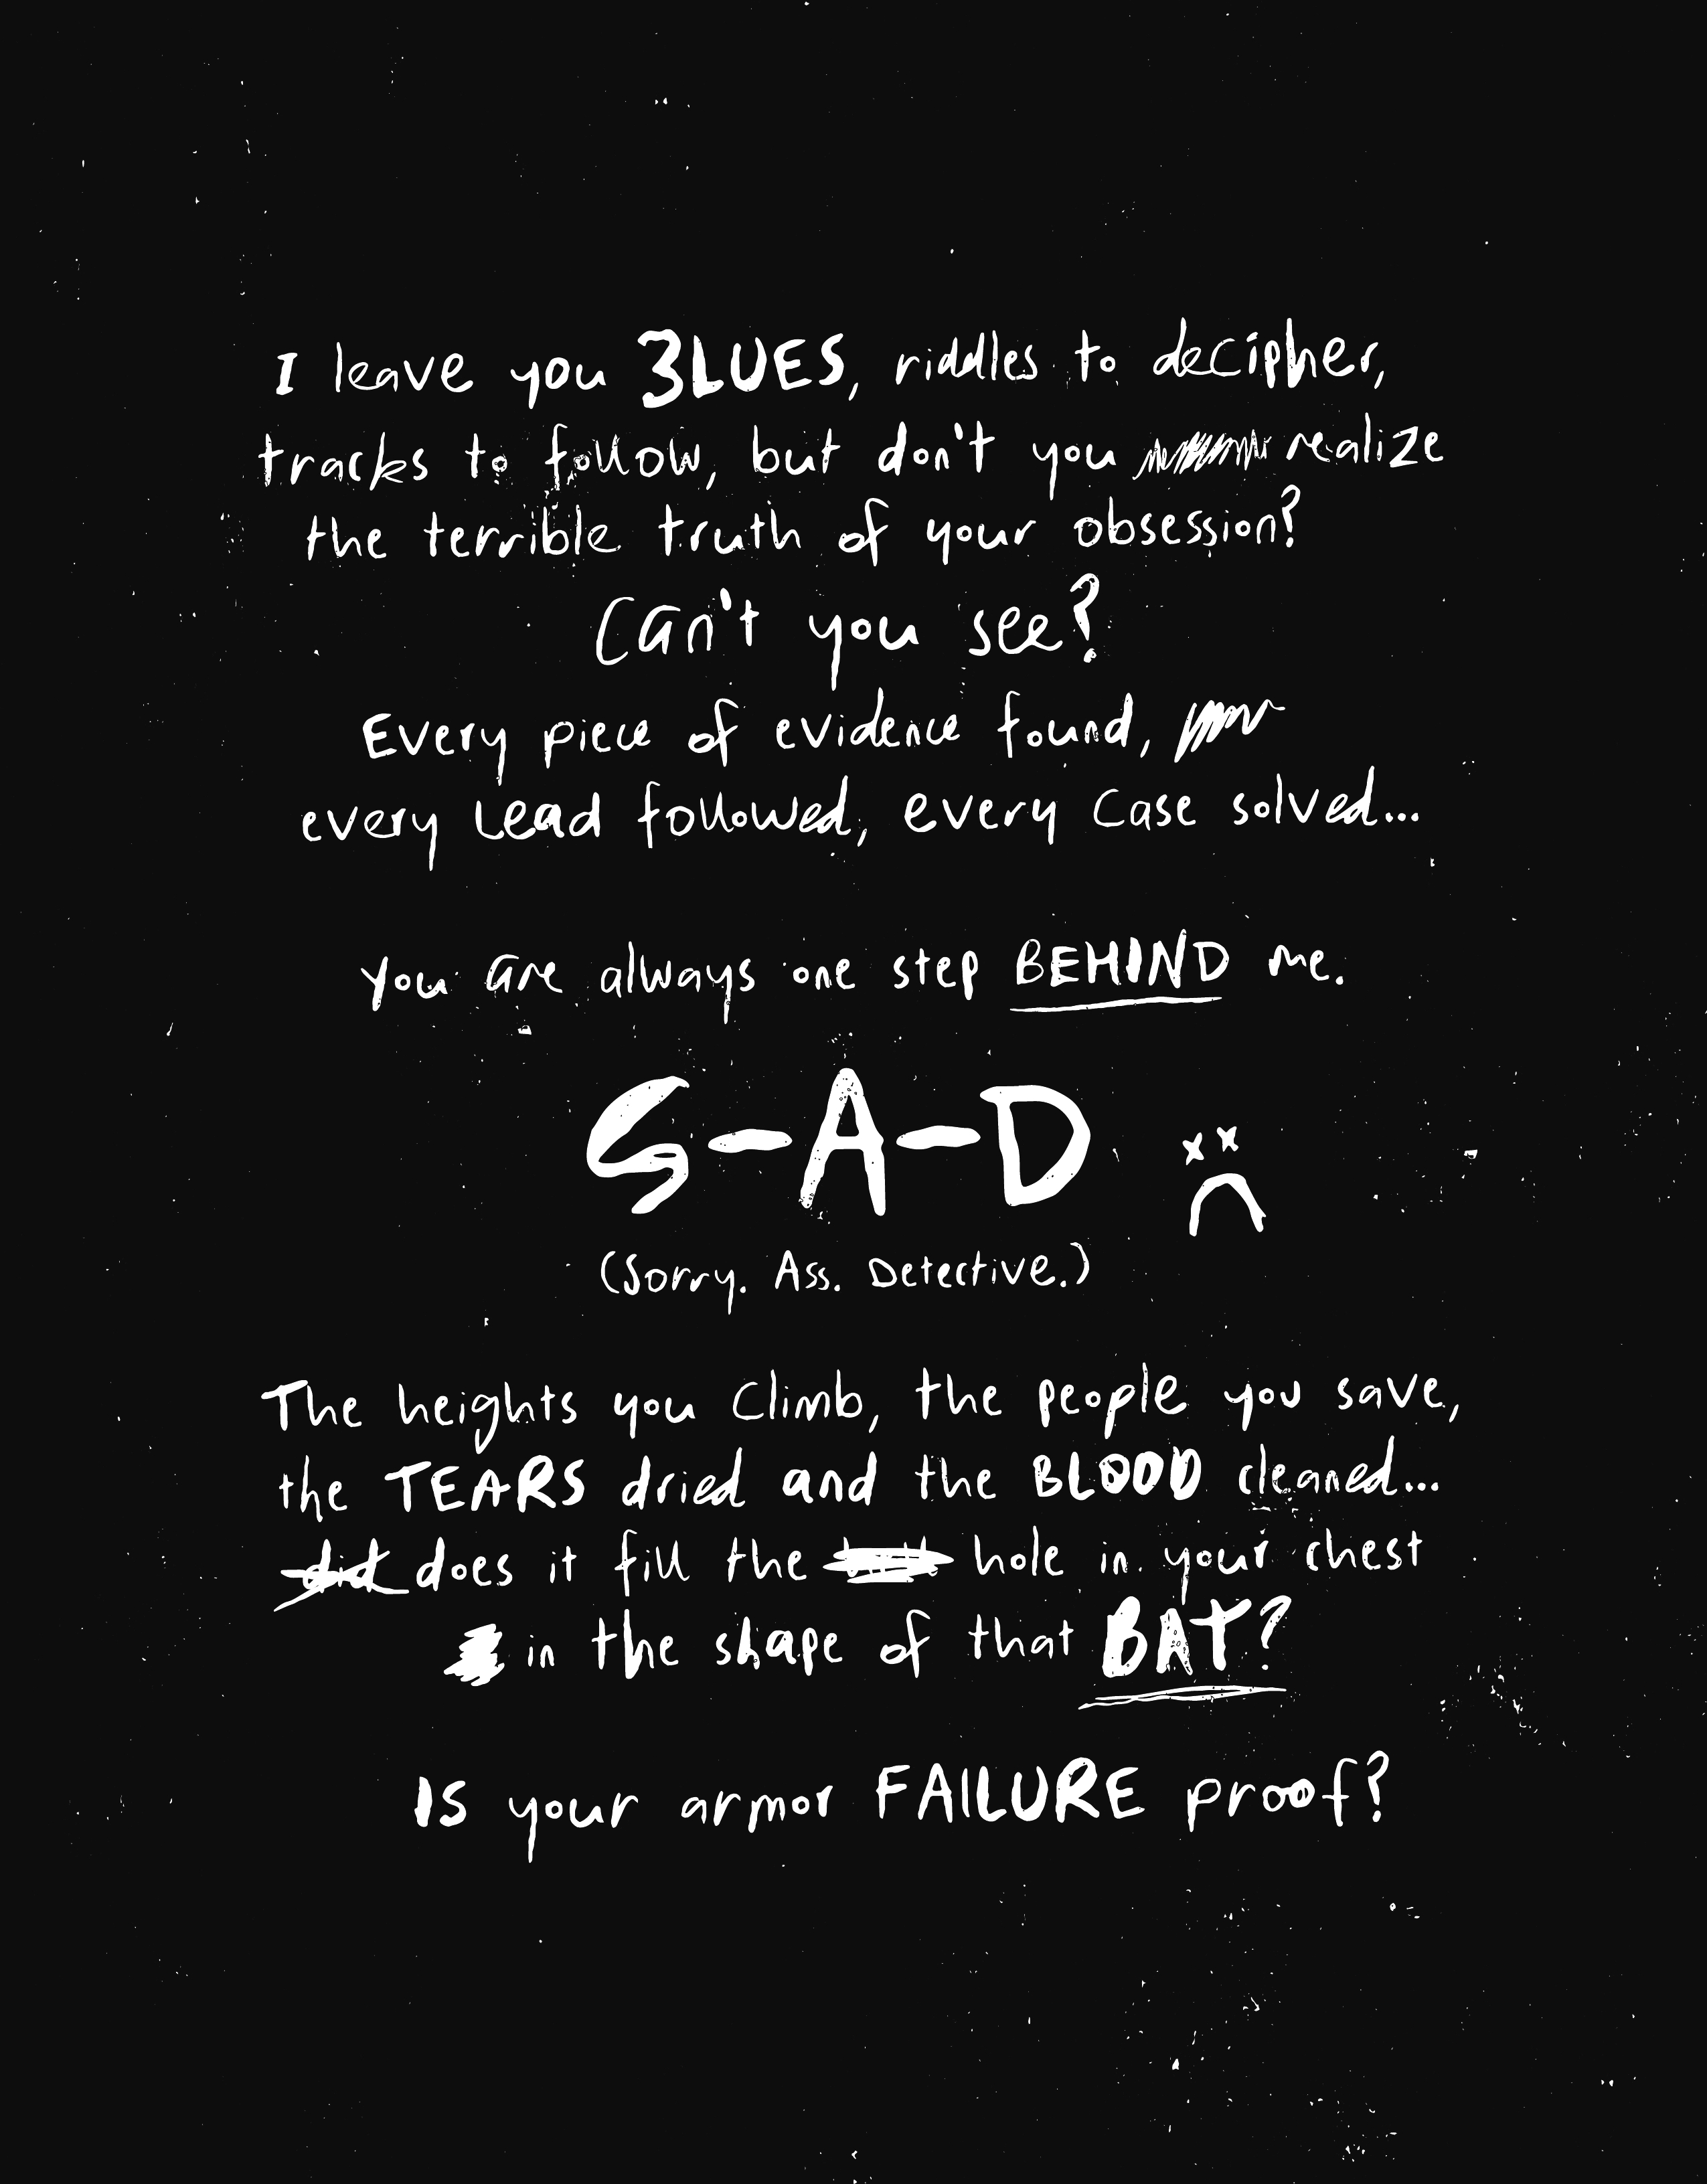 I leave you 3LUES, riddles to decipher,
tracks to follow, but don't you realize
the terrible truth of your obsession?
Can't you see?
Every piece of evidence found,
every lead followed, every case solved...
You are always one step BEHIND me.
S-A-D
(Sorry. Ass. Detective.)
The heights you climb, the people you save,
the TEARS dried and the BLOOD cleaned...
did does it fill the hole in your chest
in the shape of that BAT?
Is your armor FAILURE proof?